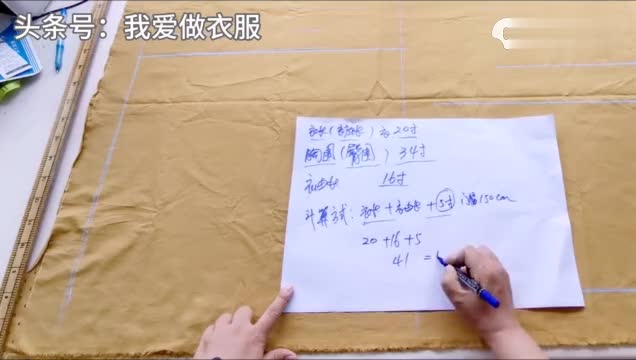 头条号：我爱做衣服
衣长（裤长）衣20寸
胸围（臀围）34寸
衣袖长 16寸
计算方式：衣长+衣袖长+5寸 门幅150cm
20+16+5
41 =